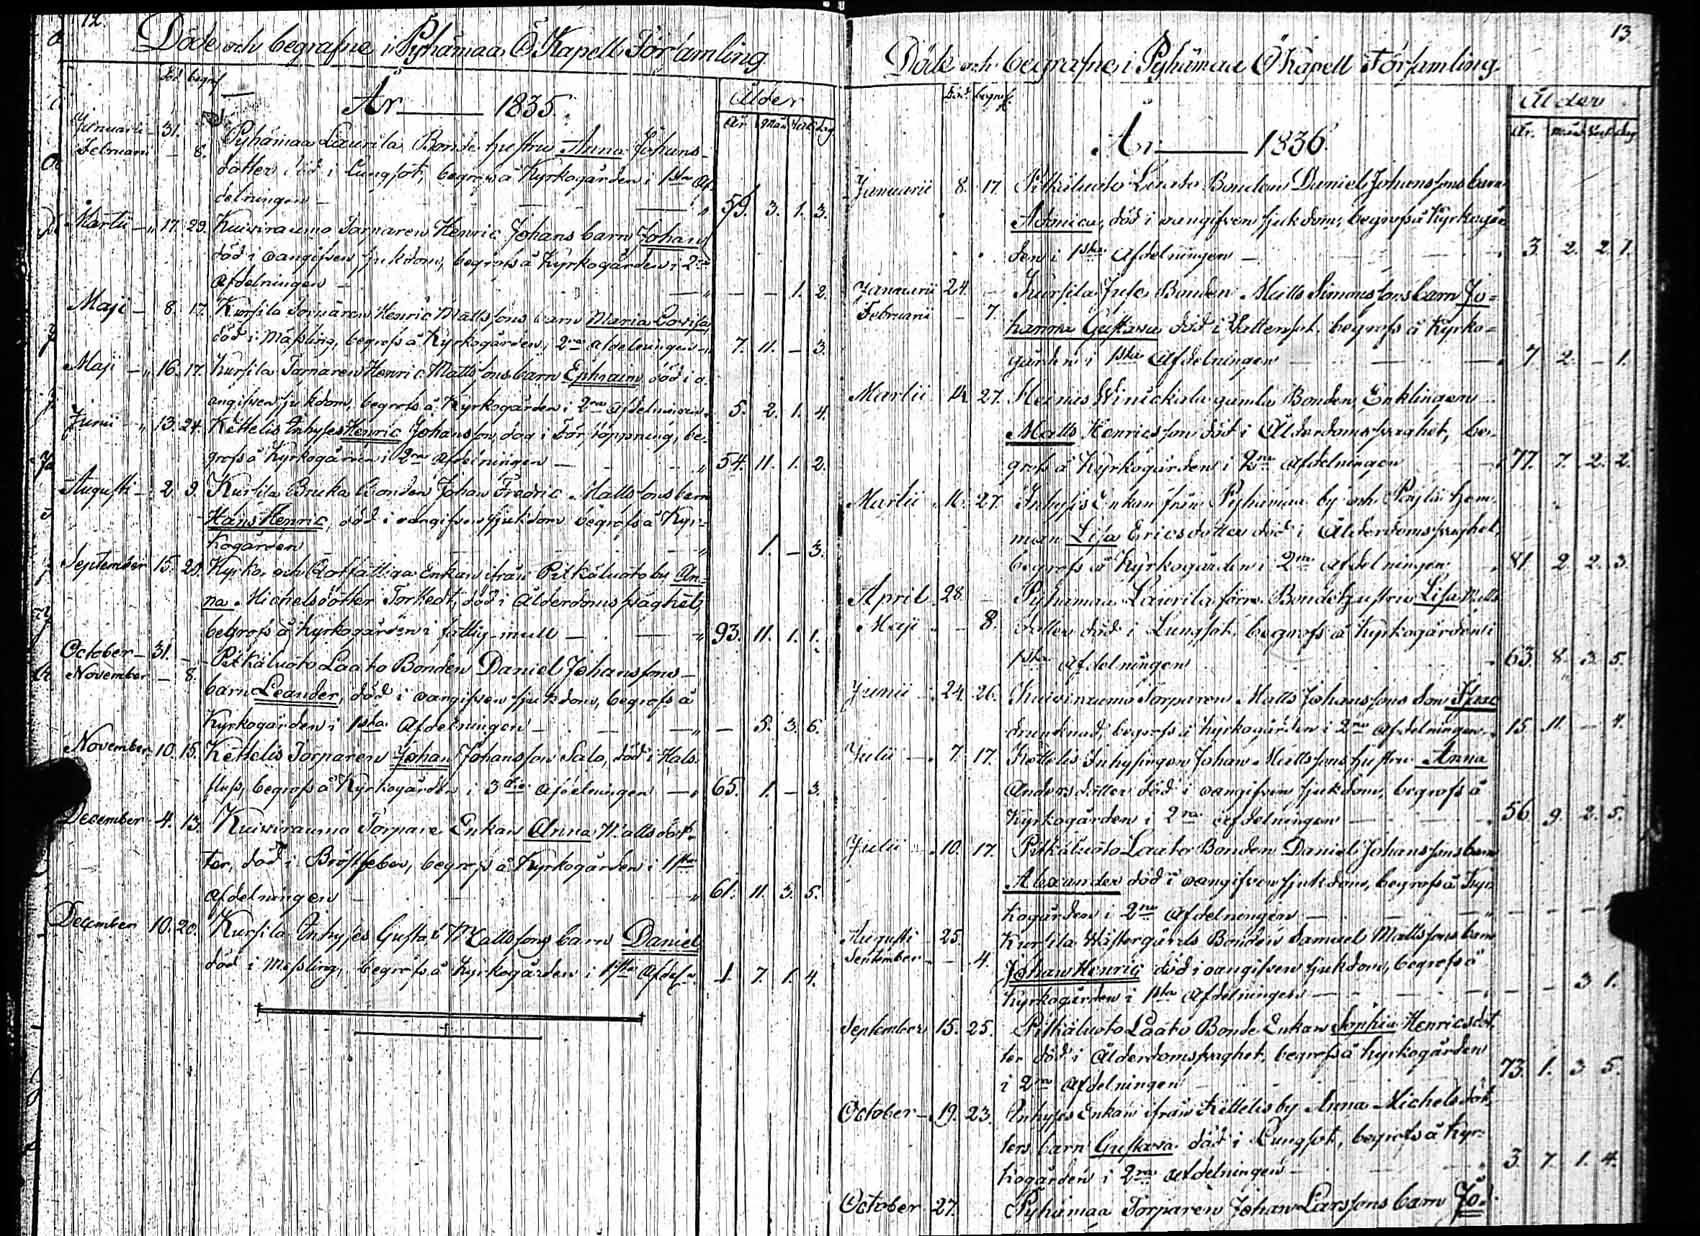 12.
Döde och begrafne i Pyhämaa Ö Kapells Församling
död begraf
År 1835.
Ålder
år. mån. veck. dag
Januarii 31.
Februarii - 8. Pyhämaa Laurila Bonde hustru Anna Johans-
dotter död i Lungsot, begrofs å Kyrkogården i 1sta af
delningen - 59. 3. 1. 3.
Martii - 17. 29. Kuivirauma Torparen Henric Johans barn Johan
död i oangifven sjukdom, begrofs å Kyrkogården i 2ra
afdelningen - - - 1. 2.
Maji - 8. 17. Kursila Torparen Henric Mattsfons barn Maria Lovisa
död i Mässling, begrofs å Kyrkogården i 2ra afdelningen 7. 11. - 3.
Maji - 16. 17. Kursila Torparen Henric Mattsfons barn Ephraim, död i o-
angifven sjukdom, begrofs å Kyrkogården i 2ra afdelningen. 5. 2. 1. 4.
Junii - 13. 24. Kettelis Inhyses Henric Johansson, dog i Förstoppning, be-
grofs å Kyrkogården i 2ra afdelningen - 54. 11. 1. 2.
Augusti - 2. 9. Kursila Bruka Bonden Johan Fredric Mattsfons barn
Hans Henric, död i oangifven sjukdom begrofs å Kyr-
kogården 1. - 3.
September 15. 20. Kyrko och Rotfattiga Enkan ifrån Pitkäluoto by An-
na Michelsdotter Torkedt, död i Ålderdoms svaghet,
begrofs å Kyrkogården i fattig mull - 93. 11. 1. 1.
October - 31. - Pitkäluoto Laato Bonden Daniel Johansfons
November - 8. barn Leander, död i oangifven sjukdom, begrofs å
Kyrkogården i 1sta Afdelningen - - 5. 3. 6.
November 10. 15. Kettelis Torparen Johan Johansson Salo, död i Hals-
fluss, begrofs å Kyrkogården i 3die afdelningen - 65. 1. - 3.
December - 4. 13. Kuivirauma Torpare Enkan Anna Mattsdot-
ter, död i Bröstfeber, begrofs å Kyrkogården i 1sta
afdelningen 61. 11. 3. 5.
December 10. 20. Kursila Inhyses Gustaf Mattsfons barn Daniel
död i Messling, begrofs å Kyrkogården i 1sta Afdel. 1. 7. 1. 4.
13.
Döde och begrafne i Pyhämaa Ö Kapell Församling.
död. begrafs
År 1836
Ålder
år. mån veck dag
Januarii 8. 17. Pitkäluoto Laato Bonden Daniel Johansfons barn
död i oangifven sjukdom, begrofs å Kyrkogår-
den i 1sta Afdelningen - 3. 2. 2. 1.
Januarii 24. - Kursila Bonden Matts Simonsfons barn Jo-
Februarii - 7. hanna Gustava död i Vattensot, begrofs å Kyrko-
gården i 1sta Afdelningen 7. 2. - 1.
Martii 14. 27. gamla Bonden, Enklingen
Matts Henricsson död i Ålderdomssvaghet, be-
grofs å Kyrkogården i 2ra Afdelningen 77. 7. 2. 2.
Martii 27. Inhyses Enkan från Pyhämaa by och hem-
man Lisa Ericsdotter död i Ålderdomssvaghet,
begrofs å Kyrkogården i 2ra Afdelningen 81. 2. 2. 3.
April 28. - Pyhämaa Laurila förra Bonde hustru Lisa Matts
Maji - 8. dotter död i Lungsot, begrofs å Kyrkogården i
1sta Afdelningen 63. 8. 3. 5.
Junii 24. 26. Kuivirauma Torparen Matts Johansfons Son
drunknad, begrofs å kyrkogården i 2ra Afdelningen. 15. 11. - 4.
Julii 7. 17. Kettelis Inhysingen Johan Mattsfons hustru Anna
Andersdotter död i oangifven sjukdom, begrofs å
Kyrkogården i 2ra afdelningen 56 9. 2. 5.
Julii 10. 17. Pitkäluoto Laato Bonden Daniel Johansfons barn
Alexander död i oangifven sjukdom, begrofs å Kyr-
kogården i 2ra Afdelningen
Augusti 25. Kursila Västergårds Bonden Samuel Mattsfons barn
September - 4. Johan Henric död i oangifven sjukdom, begrofs å
Kyrkogården i 1sta Afdelningen - - 3 1.
September 15. 25. Pitkäluoto Laato Bonde Enkan Sophia Henricsdot-
ter död i Ålderdomssvaghet, begrofs å kyrkogården
i 2ra Afdelningen 73. 1. 3 5.
October - 19. 23. Inhyses Enkan ifrån Kettelis by Anna Michelsdot-
ters barn Gustava död i Lungsot, begrofs å Kyr-
kogården i 2ra afdelningen 3. 7. 1. 4.
October 27. Pyhämaa Torparen Johan Larsfons barn